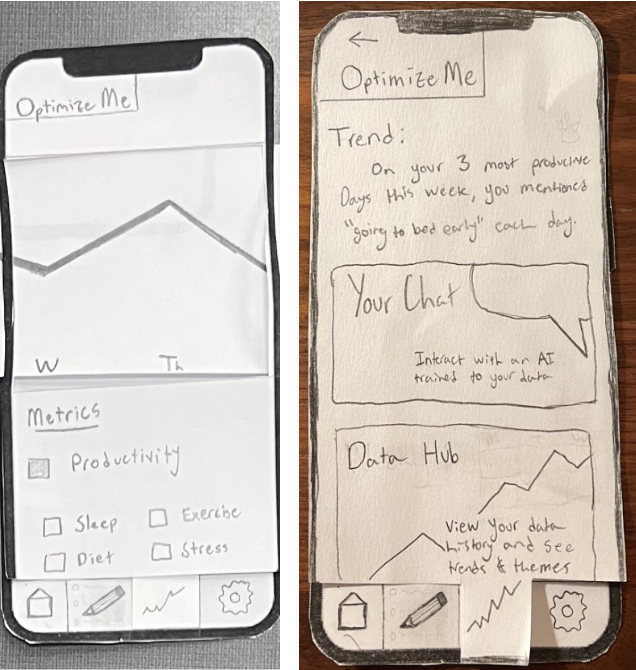 Optimize Me
W Th
Metrics
Productivity
Sleep Exercise
Diet Stress
Optimize Me
Trend:
On your 3 most productive
Days this week, you mentioned
"going to bed early" each day.
Your Chat
Interact with an AI
trained to your data
Data Hub
View your data
history and see
trends & themes